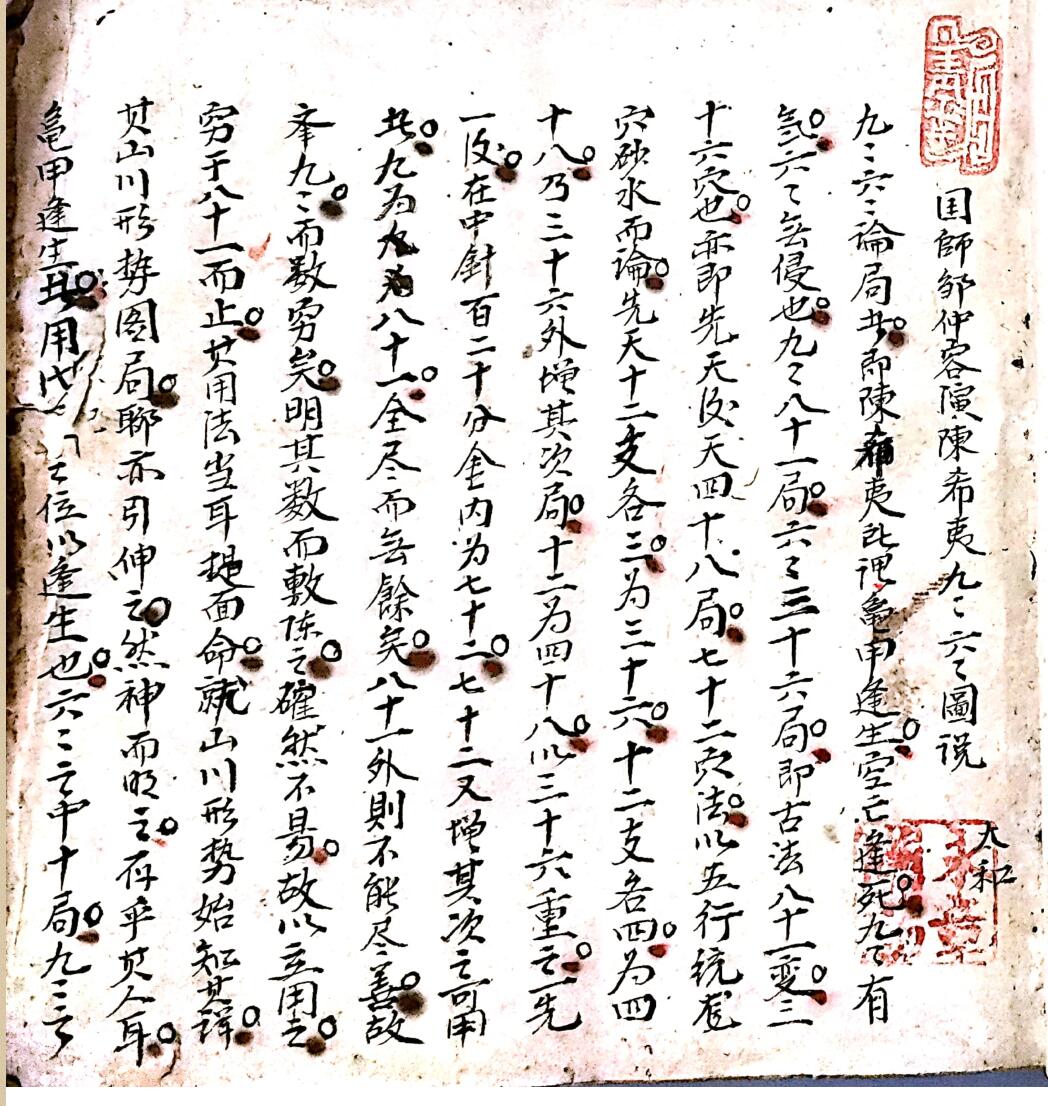 国師邹仲容演陳希夷九〻六〻圖说
太和
九〻六〻論局者即陳希夷所谓亀甲逢生空亡逢死九〻有
氣六〻無侵也九〻八十一局六〻三十六局即古法八十一变三
十六穴也亦即先天後天四十八局七十二穴法以五行统龙
穴砂水而論先天十二支各三为三十六十二支各四为四
十八乃三十六外增其次局十二为四十八以三十六重之先
一後在中針百二十分金内为七十二七十二又增其次之可用
者九为八十一全尽而無餘矣八十一外則不能尽善故
奉九〻而数穷矣明其数而敷陈之確然不易故以立用之
穷于八十一而止其用法当耳提面命就山川形势始知其詳
其山川形势图局聊亦引伸之然神而明之存乎其人耳
亀甲逢生者用 之位以逢生也六〻之中十局九〻之